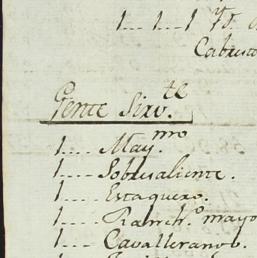 1...1...1
Cabresto
Gente Sirv.te
1.... May.mo
1.... Sobresaliente.
1.... Estaquero.
1.... Ranch.o mayo
1.... Cavallerano.